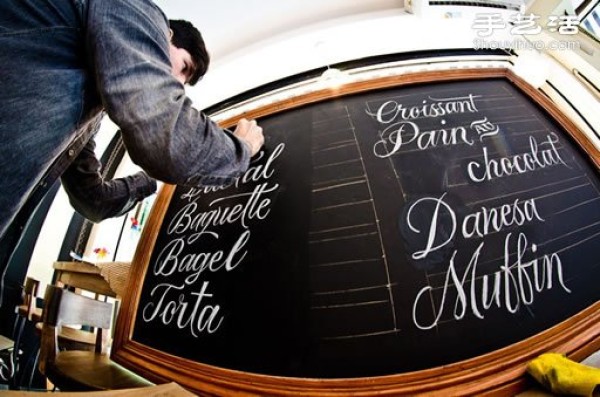 手艺活
Baguette
Bagel
Torta
Croissant
Pain au
chocolat
Danesa
Muffin